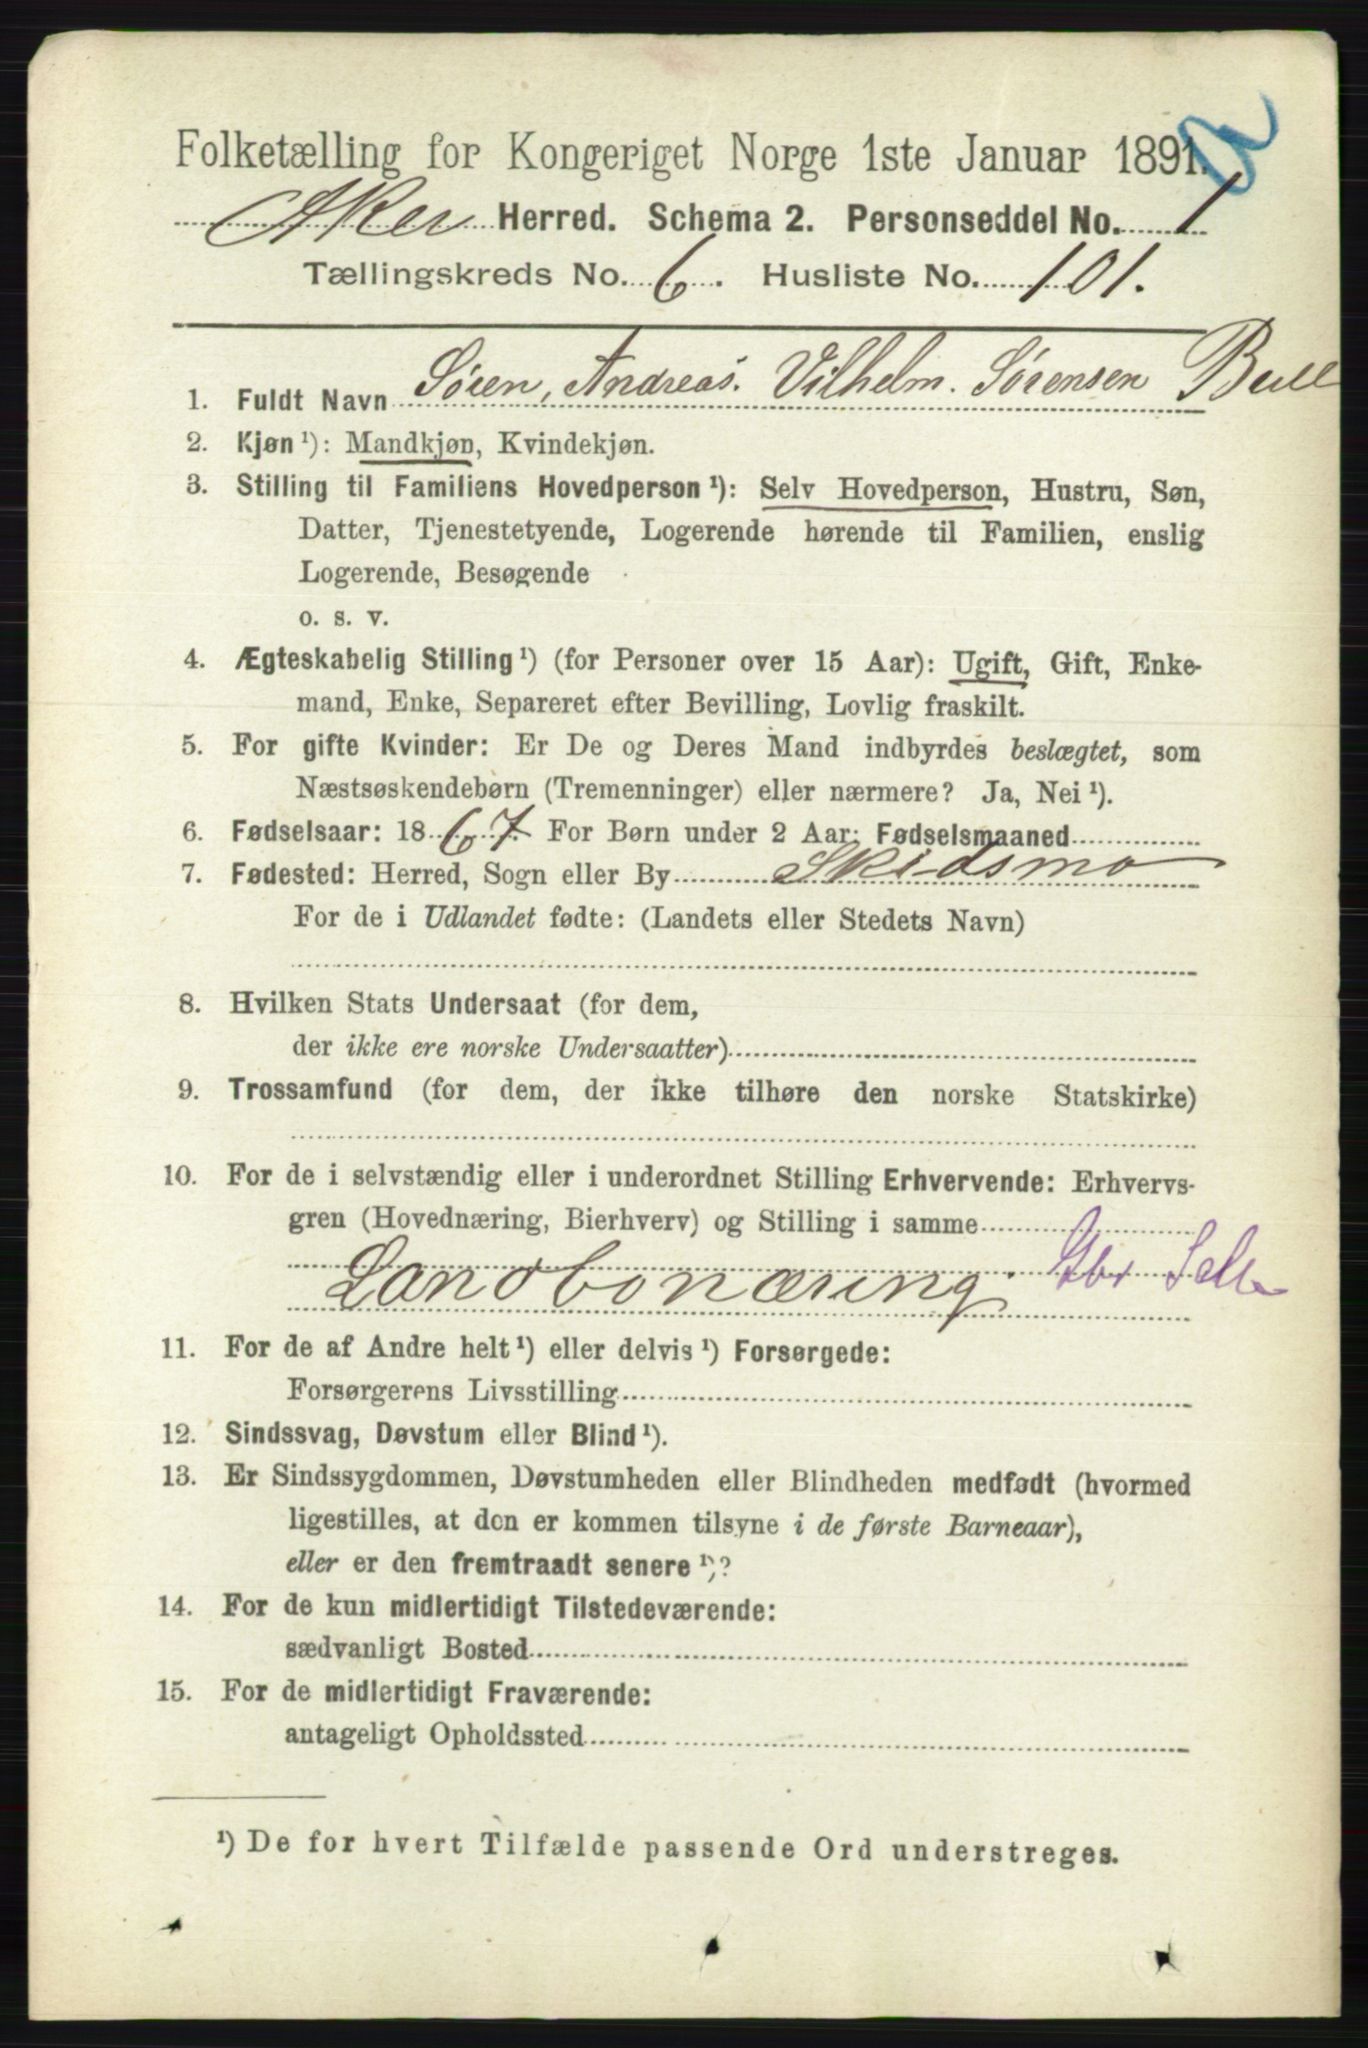 Folketælling for Kongeriget Norge 1ste Januar 1891.
Aker Herred. Schema 2. Personseddel No. 1
Tællingskreds No. 6. Husliste No. 101.
1. Fuldt Navn Søren, Andreas. Vilhelm. Sørensen Bull
2. Kjøn¹): Mandkjøn, Kvindekjøn.
3. Stilling til Familiens Hovedperson¹): Selv Hovedperson, Hustru, Søn,
Datter, Tjenestetyende, Logerende hørende til Familien, enslig
Logerende, Besøgende
o. s. v.
4. Ægteskabelig Stilling¹) (for Personer over 15 Aar): Ugift, Gift, Enke-
mand, Enke, Separeret efter Bevilling, Lovlig fraskilt.
5. For gifte Kvinder: Er De og Deres Mand indbyrdes beslægtet, som
Næstsøskendebørn (Tremenninger) eller nærmere? Ja, Nei¹).
6. Fødselsaar: 1867. For Børn under 2 Aar: Fødselsmaaned
7. Fødested: Herred, Sogn eller By Skidsmo
For de i Udlandet fødte: (Landets eller Stedets Navn)
8. Hvilken Stats Undersaat (for dem,
der ikke ere norske Undersaatter)
9. Trossamfund (for dem, der ikke tilhøre den norske Statskirke)
10. For de i selvstændig eller i underordnet Stilling Erhvervende: Erhvervs-
gren (Hovednæring, Bierhverv) og Stilling i samme
Landbonæring. Gbr
11. For de af Andre helt¹) eller delvis¹) Forsørgede:
Forsørgerens Livsstilling
12. Sindssvag, Døvstum eller Blind¹).
13. Er Sindssygdommen, Døvstumheden eller Blindheden medfødt (hvormed
ligestilles, at den er kommen tilsyne i de første Barneaar),
eller er den fremtraadt senere¹)?
14. For de kun midlertidigt Tilstedeværende:
sædvanligt Bosted
15. For de midlertidigt Fraværende:
antageligt Opholdssted
¹) De for hvert Tilfælde passende Ord understreges.